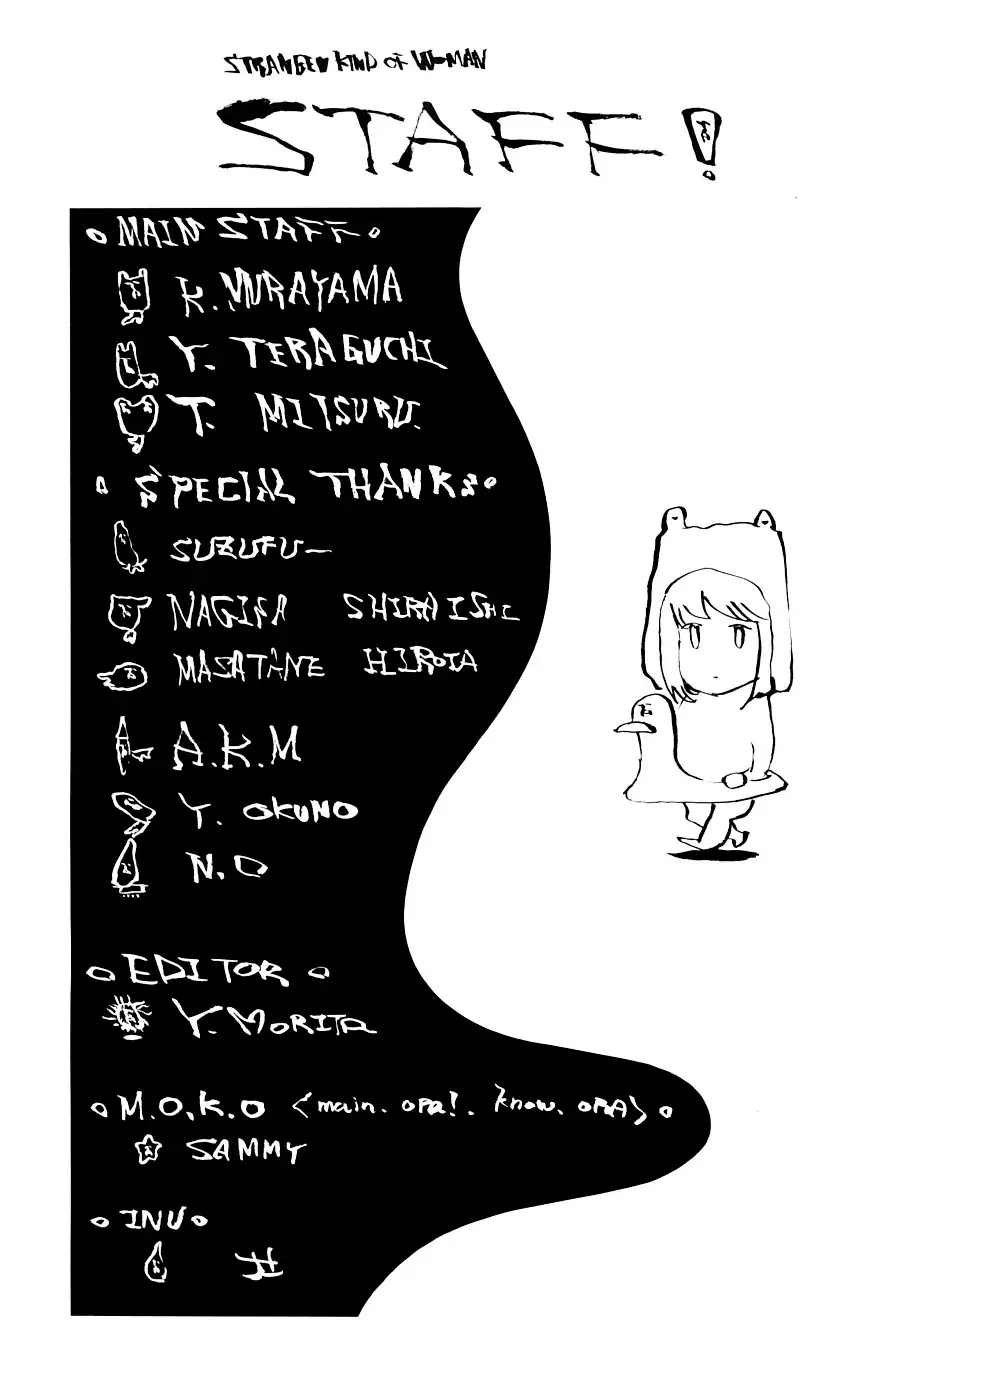 STRANGEU KIND OF WOMAN
STAFF!
MAIN STAFF
K. MURAYAMA
Y. TERAGUCHI
T. MITSURU.
SPECIAL THANKS
SUZUFU—
NAGISA SHIRAISHI
MASATANE HIROTA
A.K.M
Y. OKUNO
N.O
EDITOR
Y. MORITA
M.O.K.O <main. opa!. know. OPA>
SAMMY
INU